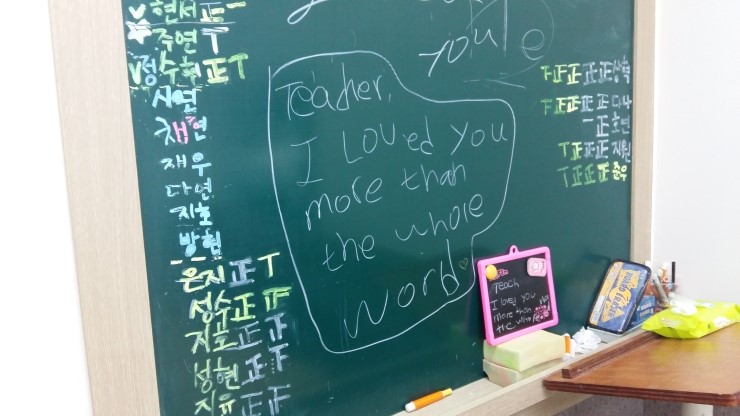 현서 正一
주연 T
정수현 正T
시연
채연
재우
다연
지호
방협
은지 正T
성수 正正
지호 正正
성현 正正
지유 正正
you
Teacher,
I Loved you
more than
the whole
world
Teach
I loved you
more than
the whole
T正正正正상혁
T正正正正다나
一正호연
T正正正지원
T正正正준우